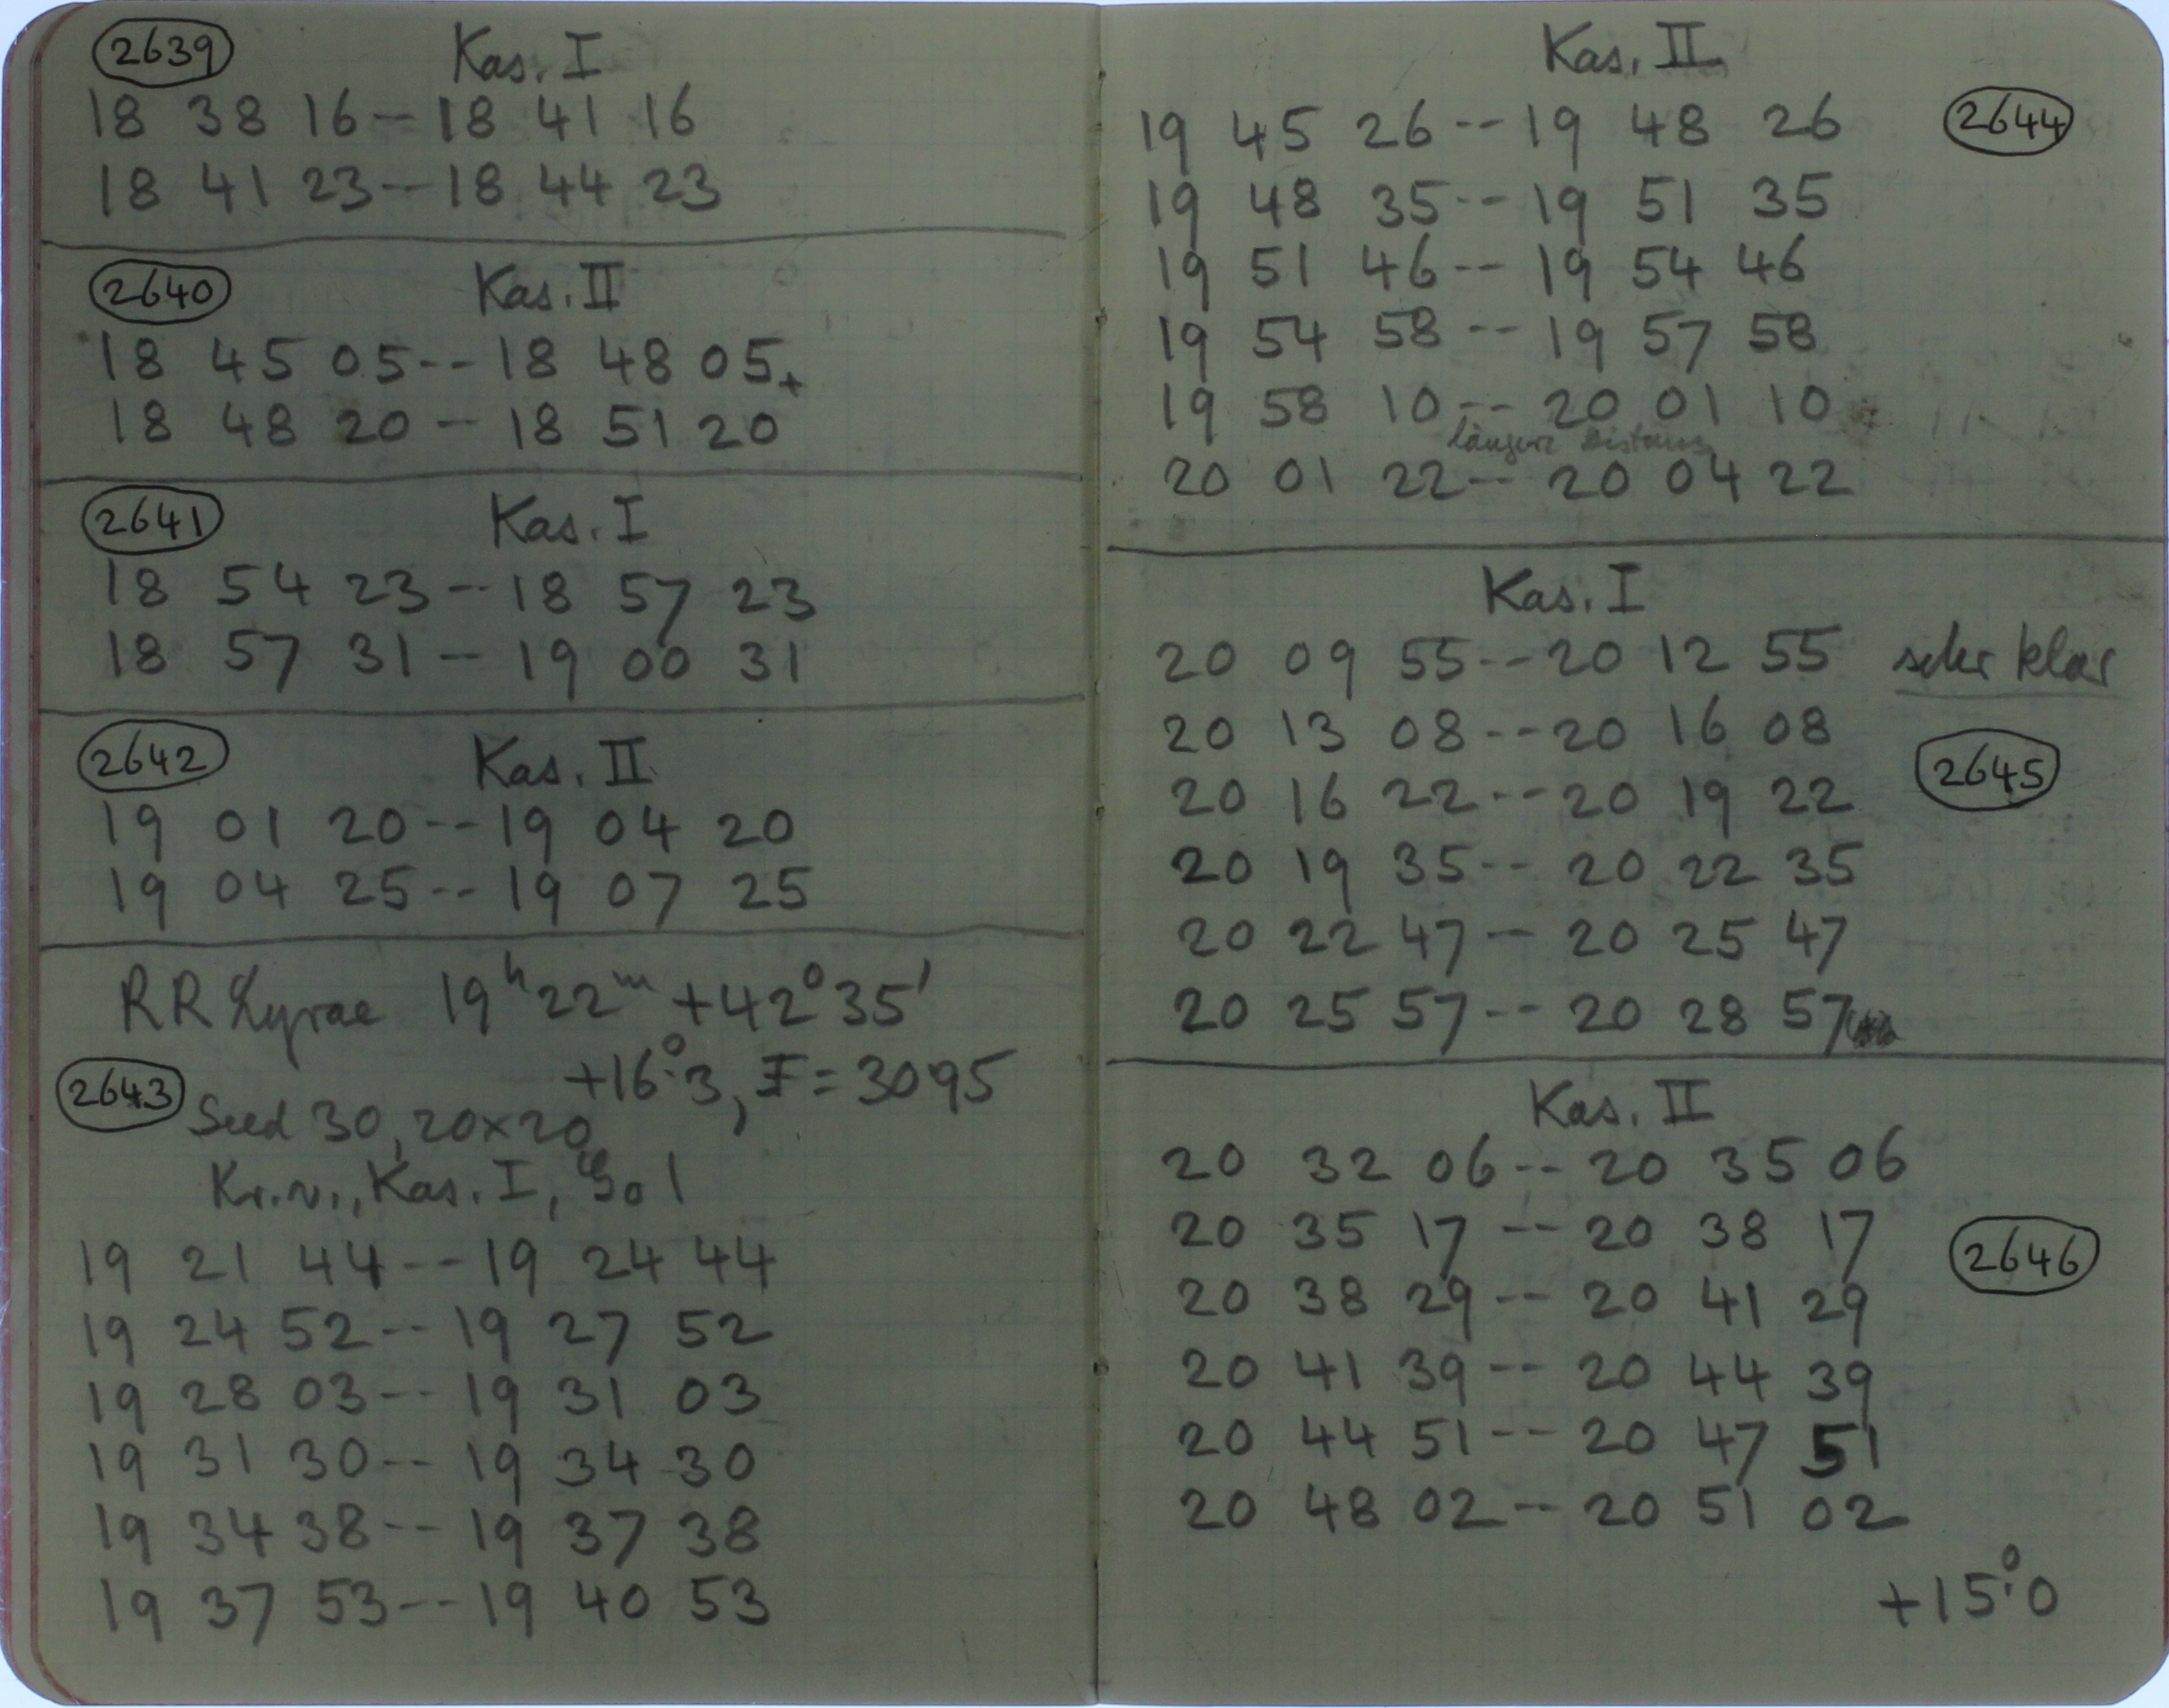 2639 Kas. I
18 38 16 -- 18 41 16
18 41 23 -- 18 44 23
2640 Kas. II
18 45 05 -- 18 48 05+
18 48 20 -- 18 51 20
2641 Kas. I
18 54 23 -- 18 57 23
18 57 31 -- 19 00 31
2642 Kas. II
19 01 20 -- 19 04 20
19 04 25 -- 19 07 25
RR Lyrae 19h 22m +42° 35'
+16°.3, F = 3095
2643 Seed 30, 20x20
Kr. v., Kas. I, 1
19 21 44 -- 19 24 44
19 24 52 -- 19 27 52
19 28 03 -- 19 31 03
19 31 30 -- 19 34 30
19 34 38 -- 19 37 38
19 37 53 -- 19 40 53
Kas. II
19 45 26 -- 19 48 26 2644
19 48 35 -- 19 51 35
19 51 46 -- 19 54 46
19 54 58 -- 19 57 58
19 58 10 -- 20 01 10
längere Distanz
20 01 22 -- 20 04 22
Kas. I
20 09 55 -- 20 12 55 sehr klar
20 13 08 -- 20 16 08
20 16 22 -- 20 19 22 2645
20 19 35 -- 20 22 35
20 22 47 -- 20 25 47
20 25 57 -- 20 28 57
Kas. II
20 32 06 -- 20 35 06
20 35 17 -- 20 38 17 2646
20 38 29 -- 20 41 29
20 41 39 -- 20 44 39
20 44 51 -- 20 47 51
20 48 02 -- 20 51 02
+15°.0